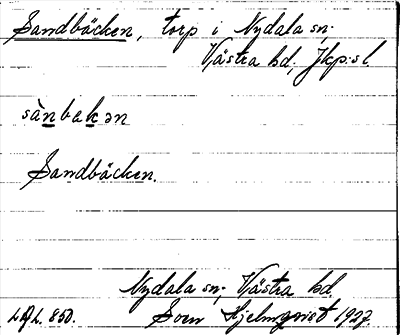 Sandbäcken, torp i Nydala sn,
Västra hd, Jkp:s l.
sànbakən
Sandbäcken.
Nydala sn, Västra hd.
LAL. 850. Sven Hjelmqvist 1927.